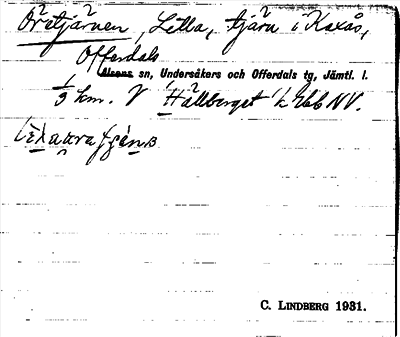 Öretjärnen, Lilla, tjärn i Kaxås,
Offerdals
Alsens sn, Undersåkers och Offerdals tg, Jämtl. l.
1/3 km. V Hällberget
C. LINDBERG 1931.